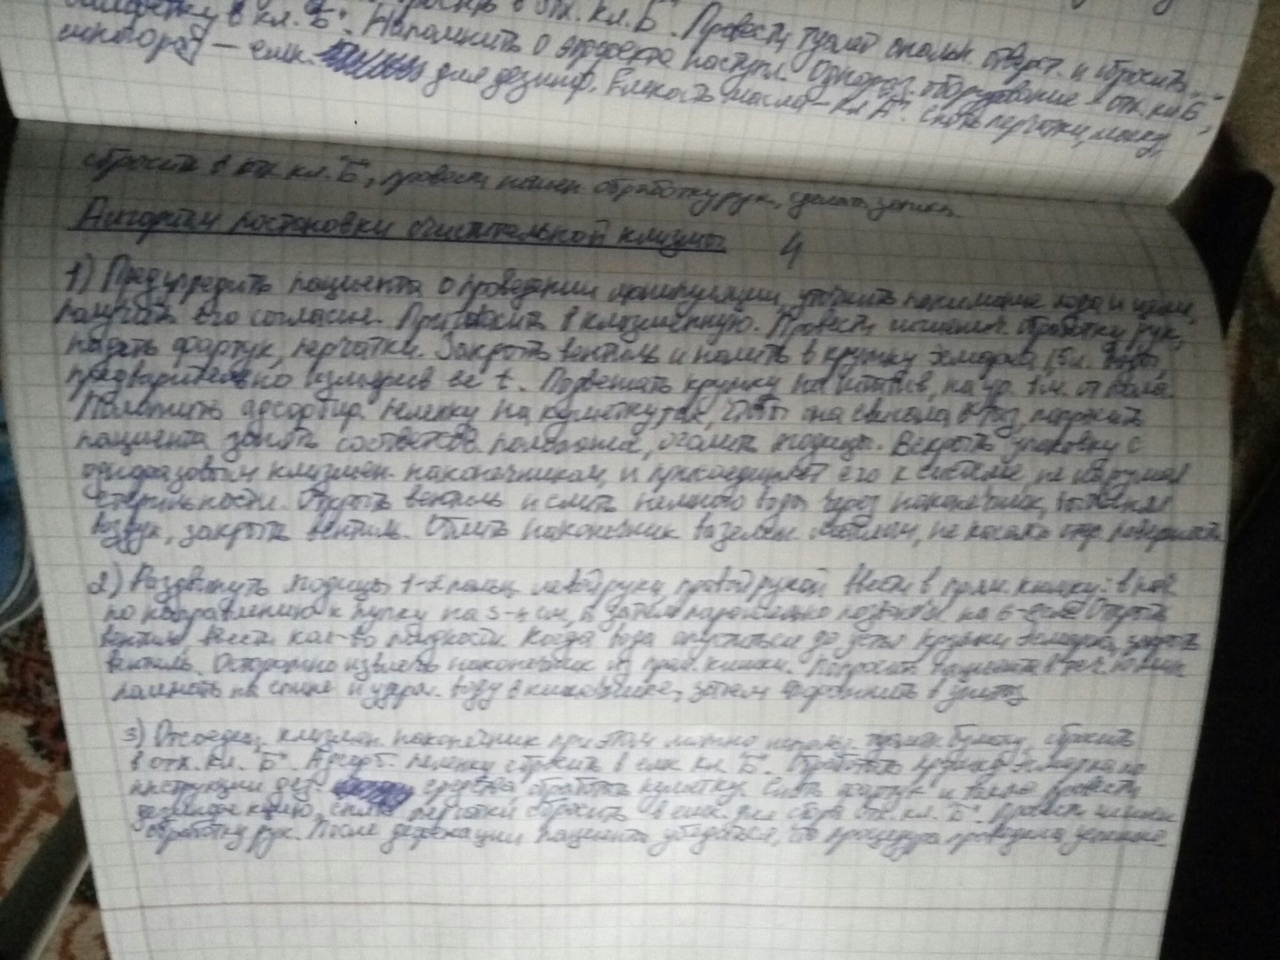 салфетку в кл. "Б". в отх. кл. Б". Провести туалет анальн. отверст. и сбросить
Напомнить о эффекте наступл. Одноразов. оборудование - отх. кл "Б",
шпатора - емк. для дезинф. Емкость масла - кл "А". Снять перчатки, маску,
сбросить в отх. кл. "Б", провести гигиен. обработку рук, сделать запись.
Алгоритм постановки очистительной клизмы 4
1) Предупредить пациента о проведении манипуляции, уточнить понимание хода и цели,
получить его согласие. Пригласить в клизменную. Провести гигиенич. обработку рук,
надеть фартук, перчатки. Закрыть вентиль и налить в кружку Эсмарха 1,5 л. воды,
предварительно измерив ее t. Подвешать кружку на штатив, на ур. 1 м. от пола.
Положить адсорбир. пеленку на кушетку так, чтобы она свисала в таз, положить
пациента занять соответств. положение, оголить ягодицы. Вскрыть упаковку с
одноразовым клизмен. наконечником, и присоединяет его к системе, не нарушая
стерильности. Открыть вентиль и слить немного воды через наконечник, вытесняя
воздух, закрыть вентиль. Облить наконечник вазелин. маслом, не касаясь поверхности
2) Раздвинуть ягодицы 1-2 пальц. левой руки, правой рукой ввести в прям. кишку: в нач
по направлению к пупку на 3-4 см, а затем параллельно позвон. на 6-8 см Открыть
вентиль ввести кол-во жидкости. Когда вода опустится до устья кружки Эсмарха, закрыть
вентиль. Осторожно извлечь наконечник из прям. кишки. Попросить пациента в теч. 10 мин
полежать на спине и удерж. воду в кишечнике, затем опорожнить в унитаз
3) Отсоедин. клизмен. наконечник при этом можно использ. туалет. бумагу, сбросить
в отх. кл. "Б". Адсорб. пеленку сбросить в емк. кл "Б". Обработать кружку Эсмарха по
инструкции дез. средства обработать кушетку. Снять фартук и также провести
дезинфекцию, снять перчатки сбросить в емк. для сбора отх. кл. "Б". Провести гигиен
обработку рук. После дефекации пациента убедиться, что процедура проведена успешно.